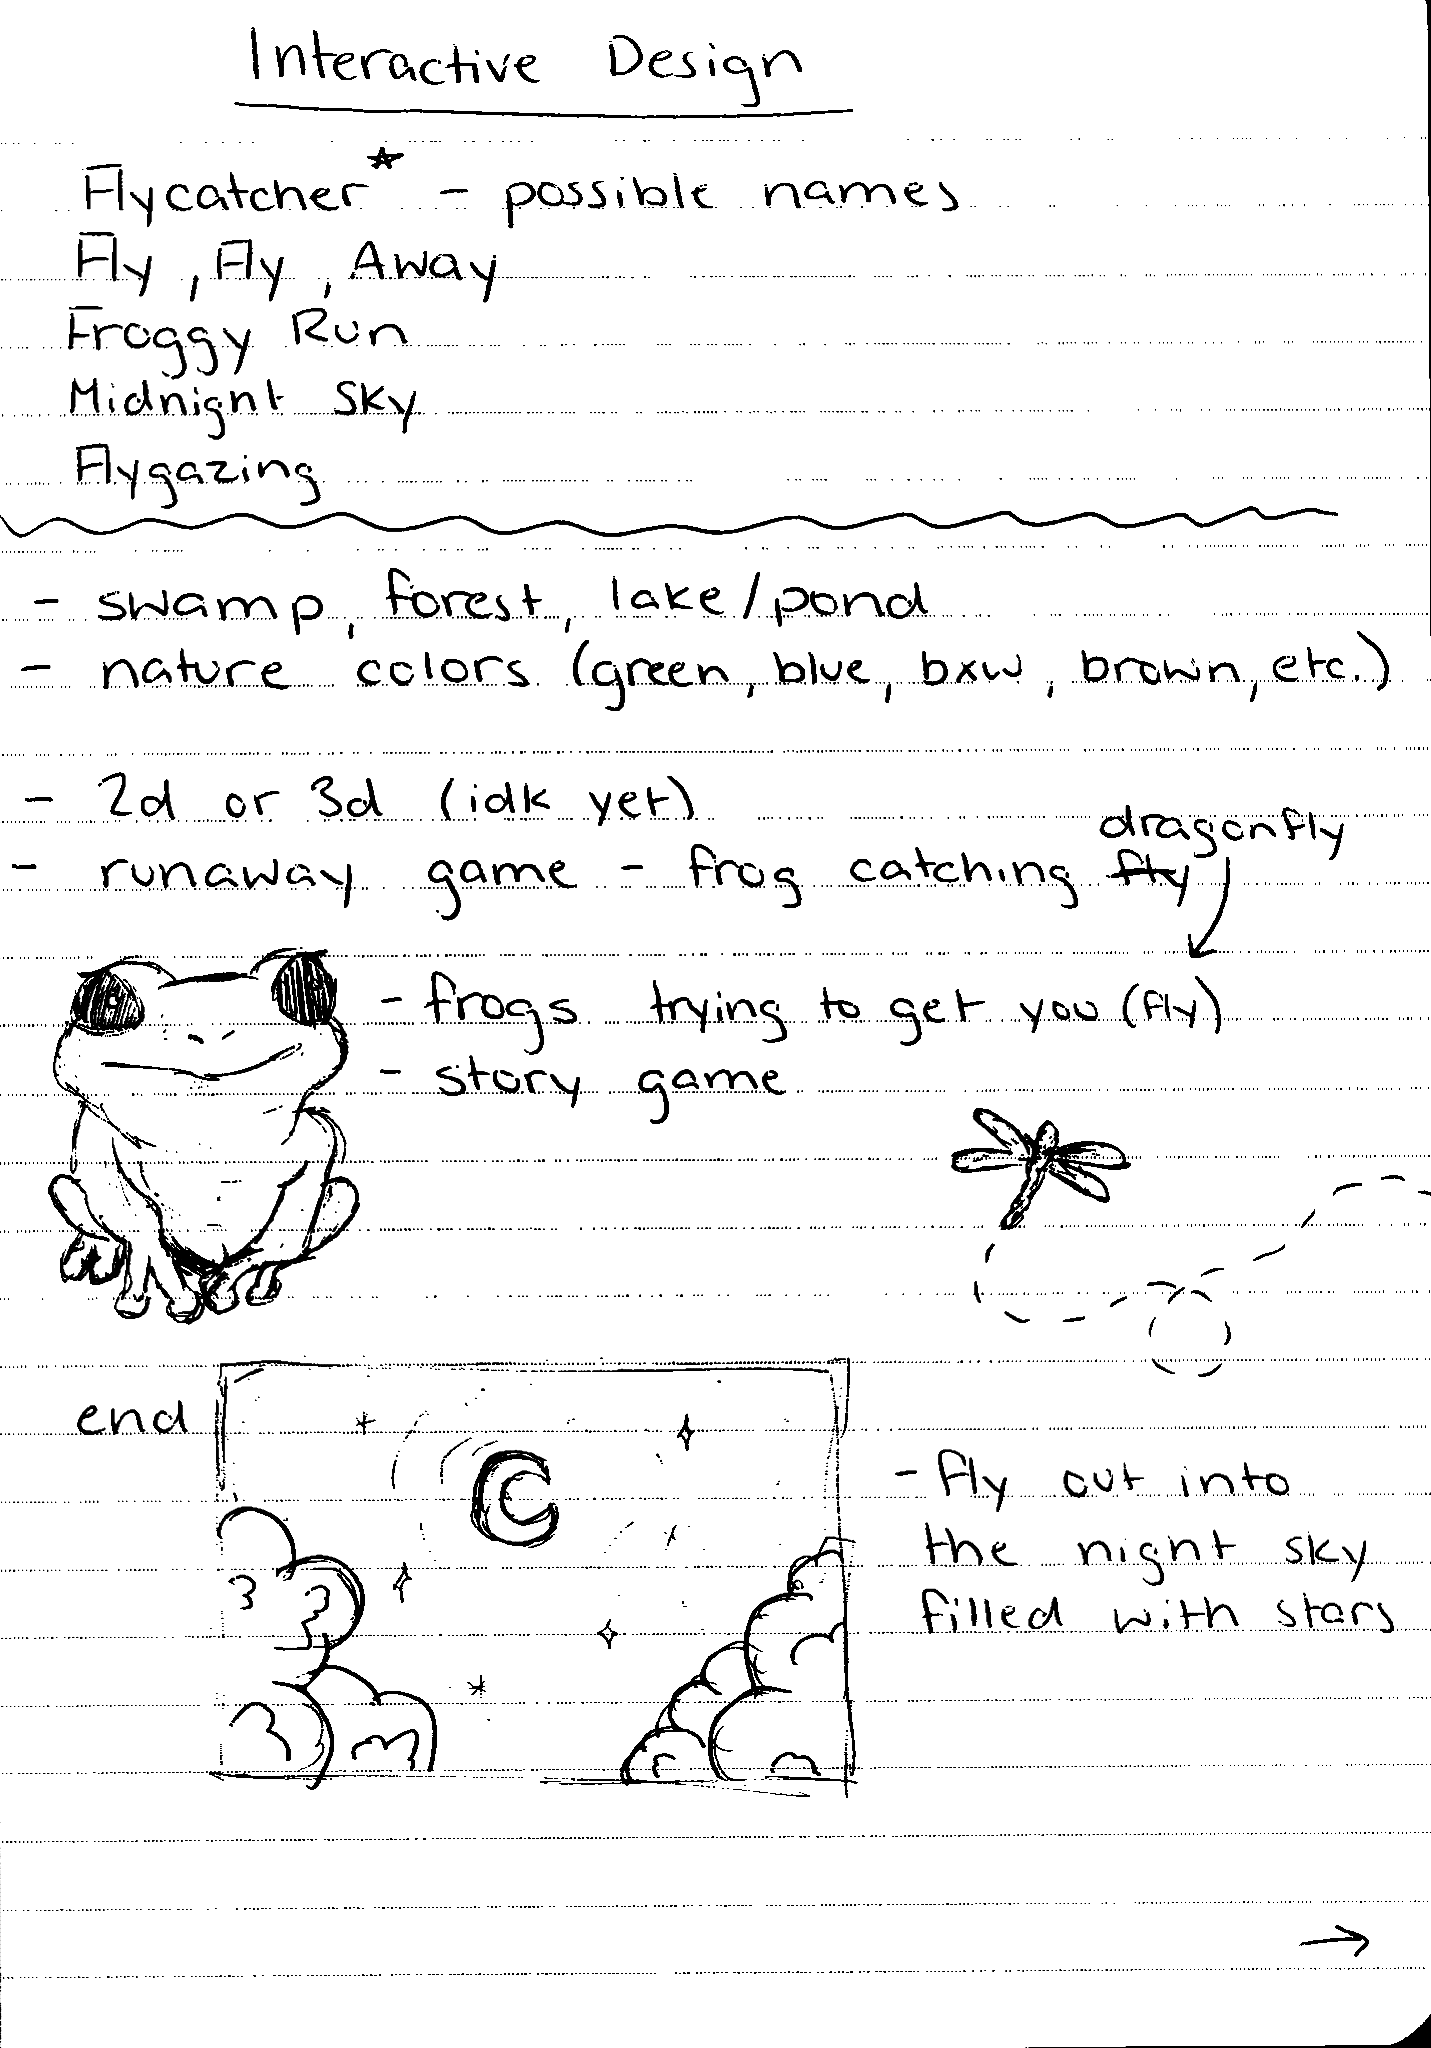 Interactive Design
Flycatcher* - possible names
Fly, Fly, Away
Froggy Run
Midnight Sky
Flygazing
- swamp, forest, lake/pond
- nature colors (green, blue, bxw, brown, etc.)
- 2d or 3d (idk yet)
dragonfly
- runaway game - frog catching fly
- frogs trying to get you (fly)
- story game
end
- fly out into
the night sky
filled with stars